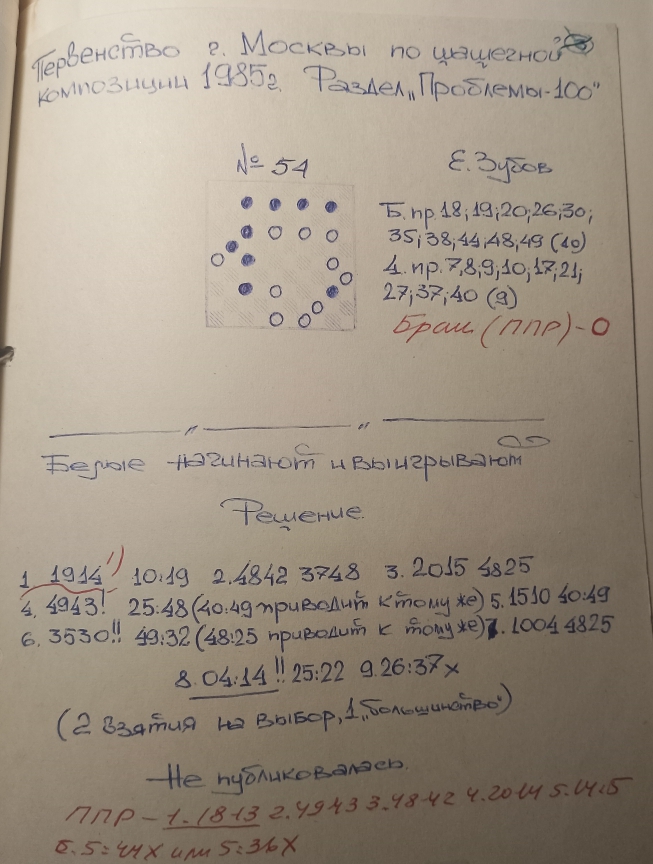 Первенство г. Москвы по шашечной
композиции 1985г. Раздел „Проблемы-100"
№ 54
Е. Зубов
Б. пр. 18; 19; 20; 26; 30;
35; 38; 44; 48; 49 (10)
Ч. пр. 7, 8; 9; 10; 17; 21;
27; 37; 40 (9)
Брак (ППР) - 0
Белые начинают и выигрывают
Решение.
1. 1914 !) 10:19 2. 4842 3748 3. 2015 4825
4. 4943! 25:48 (40:49 приводит к тому же) 5. 1510 40:49
6. 3530!! 49:32 (48:25 приводит к тому же) 7. 1004 4825
8. 04:14!! 25:22 9. 26:37х
(2 взятия на выбор, 1 „большинство")
Не публиковалась.
ППР – 1. 1813 2. 4943 3. 4842 4. 2014 5. 14:5
6. 5:44X или 5:36X